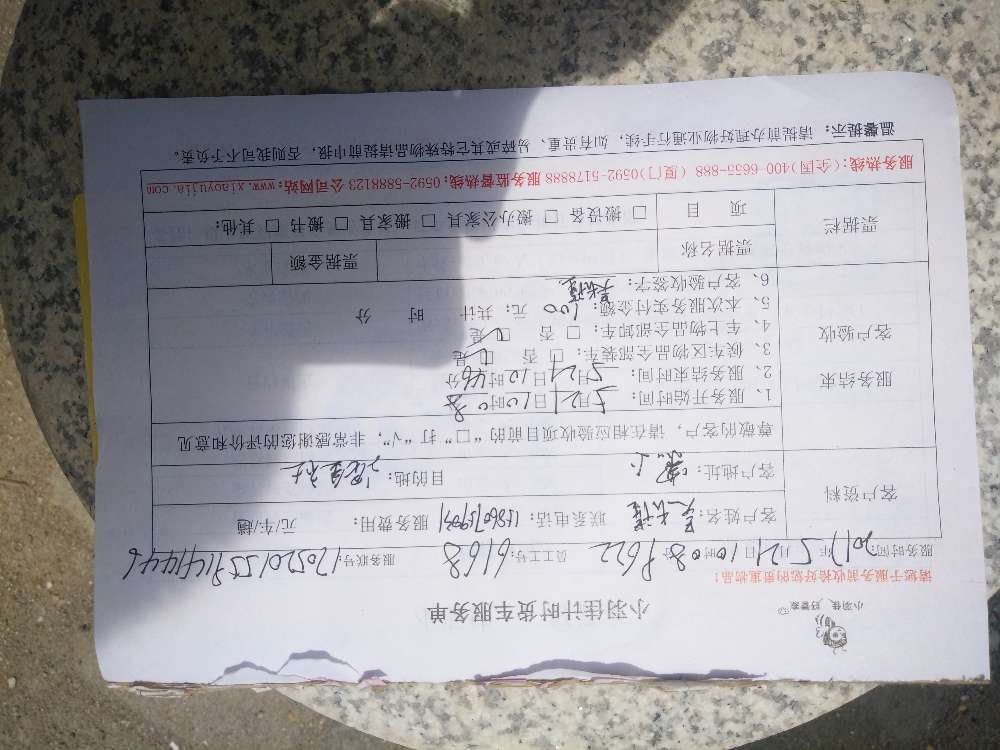 小羽佳 好管家
小羽佳计时货车服务单
请您于服务前收拾您的贵重物品!
服务时间: 2017年5月21日10时08分 员工工号: 6168 服务账号:
客户资料
客户姓名: 联系电话: 服务费用: 元/车/趟
客户地址: 目的地:
尊敬的客户，请在相应验收项目前的“□”打“√”，非常感谢您的评价和意见
服务结束
客户验收
1、服务开始时间: 5月21日10时08分
2、服务结束时间: 5月21日10时46分
3、候车区物品全部装车: □ 否 □ 是
4、车上物品全部卸车: □ 否 □ 是
5、本次服务实付金额: 100 元: 共计 时 分
6、客户验收签字:
票据栏
票据名称 票据金额
项 目 □ 搬设备 □ 搬办公家具 □ 搬家具 □ 搬书 □ 其他:
服务热线:(全国)400-6655-888 (厦门)0592-5178888 服务监督热线:0592-5888123 公司网站:www.xiaoyujia.com
温馨提示: 请提前办理好物业通行手续, 如有贵重、易碎或其它特殊物品请提前申报, 否则我司不予负责。